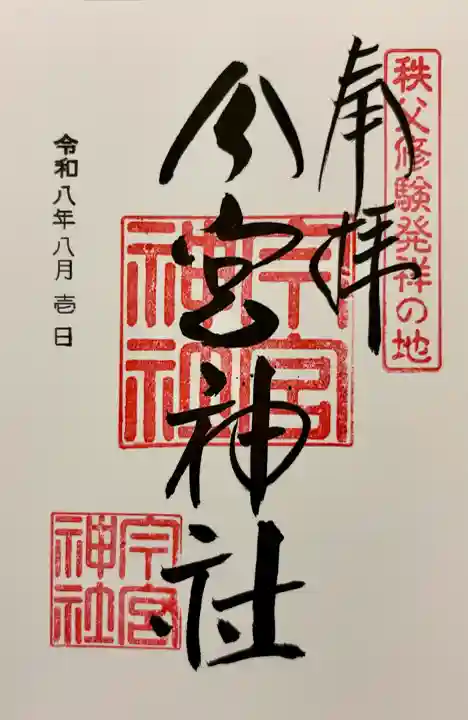 秩父修験発祥の地
奉拝
今宮神社
今宮神社
今宮神社
令和八年八月壱日